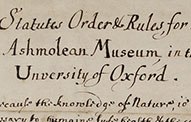 Statutes Orders & Rules for
Ashmolean Museum, in the
Unversity of Oxford.
ecause the knowledge of Nature is
ssary to humaine life, health &